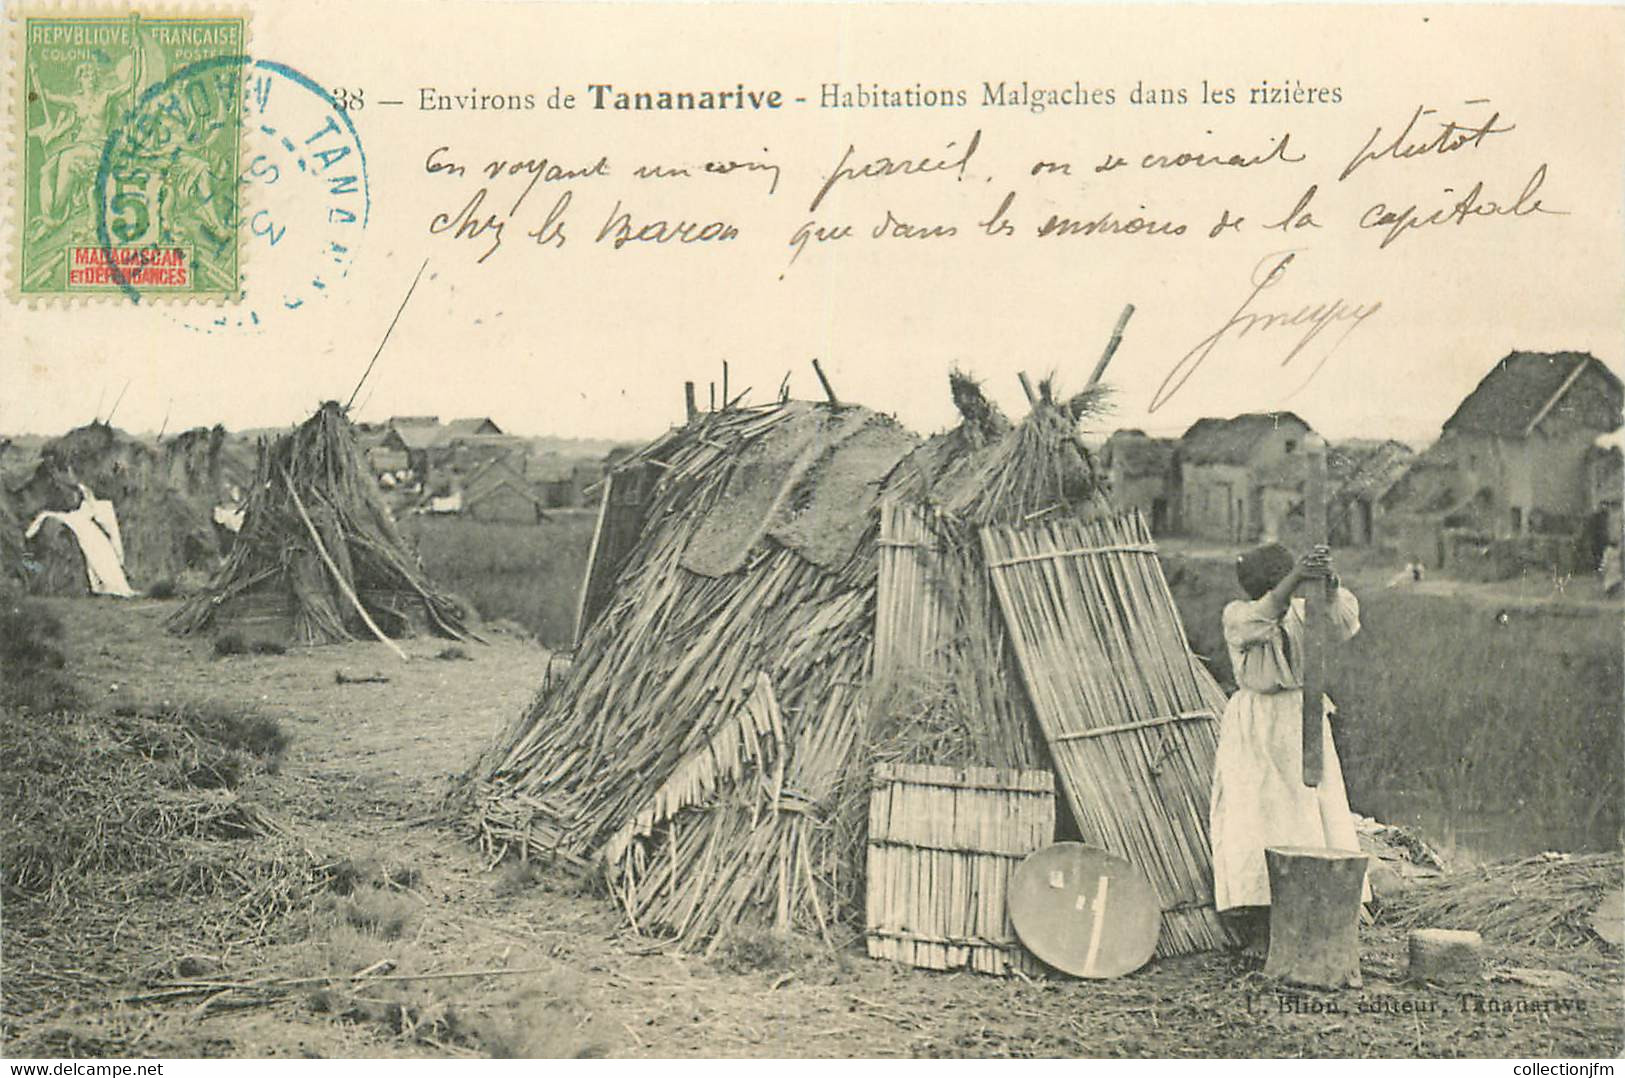 REPVBLIQVE FRANÇAISE
COLONIES POSTES
5
MADAGASCAR
ET DÉPENDANCES
MADAGASCAR
TANANARIVE
3
38 — Environs de Tananarive - Habitations Malgaches dans les rizières
En voyant un coin pareil, on se croirait plutôt
chez les Baron que dans les environs de la capitale
L. Blion, éditeur, Tananarive
collectionjfm